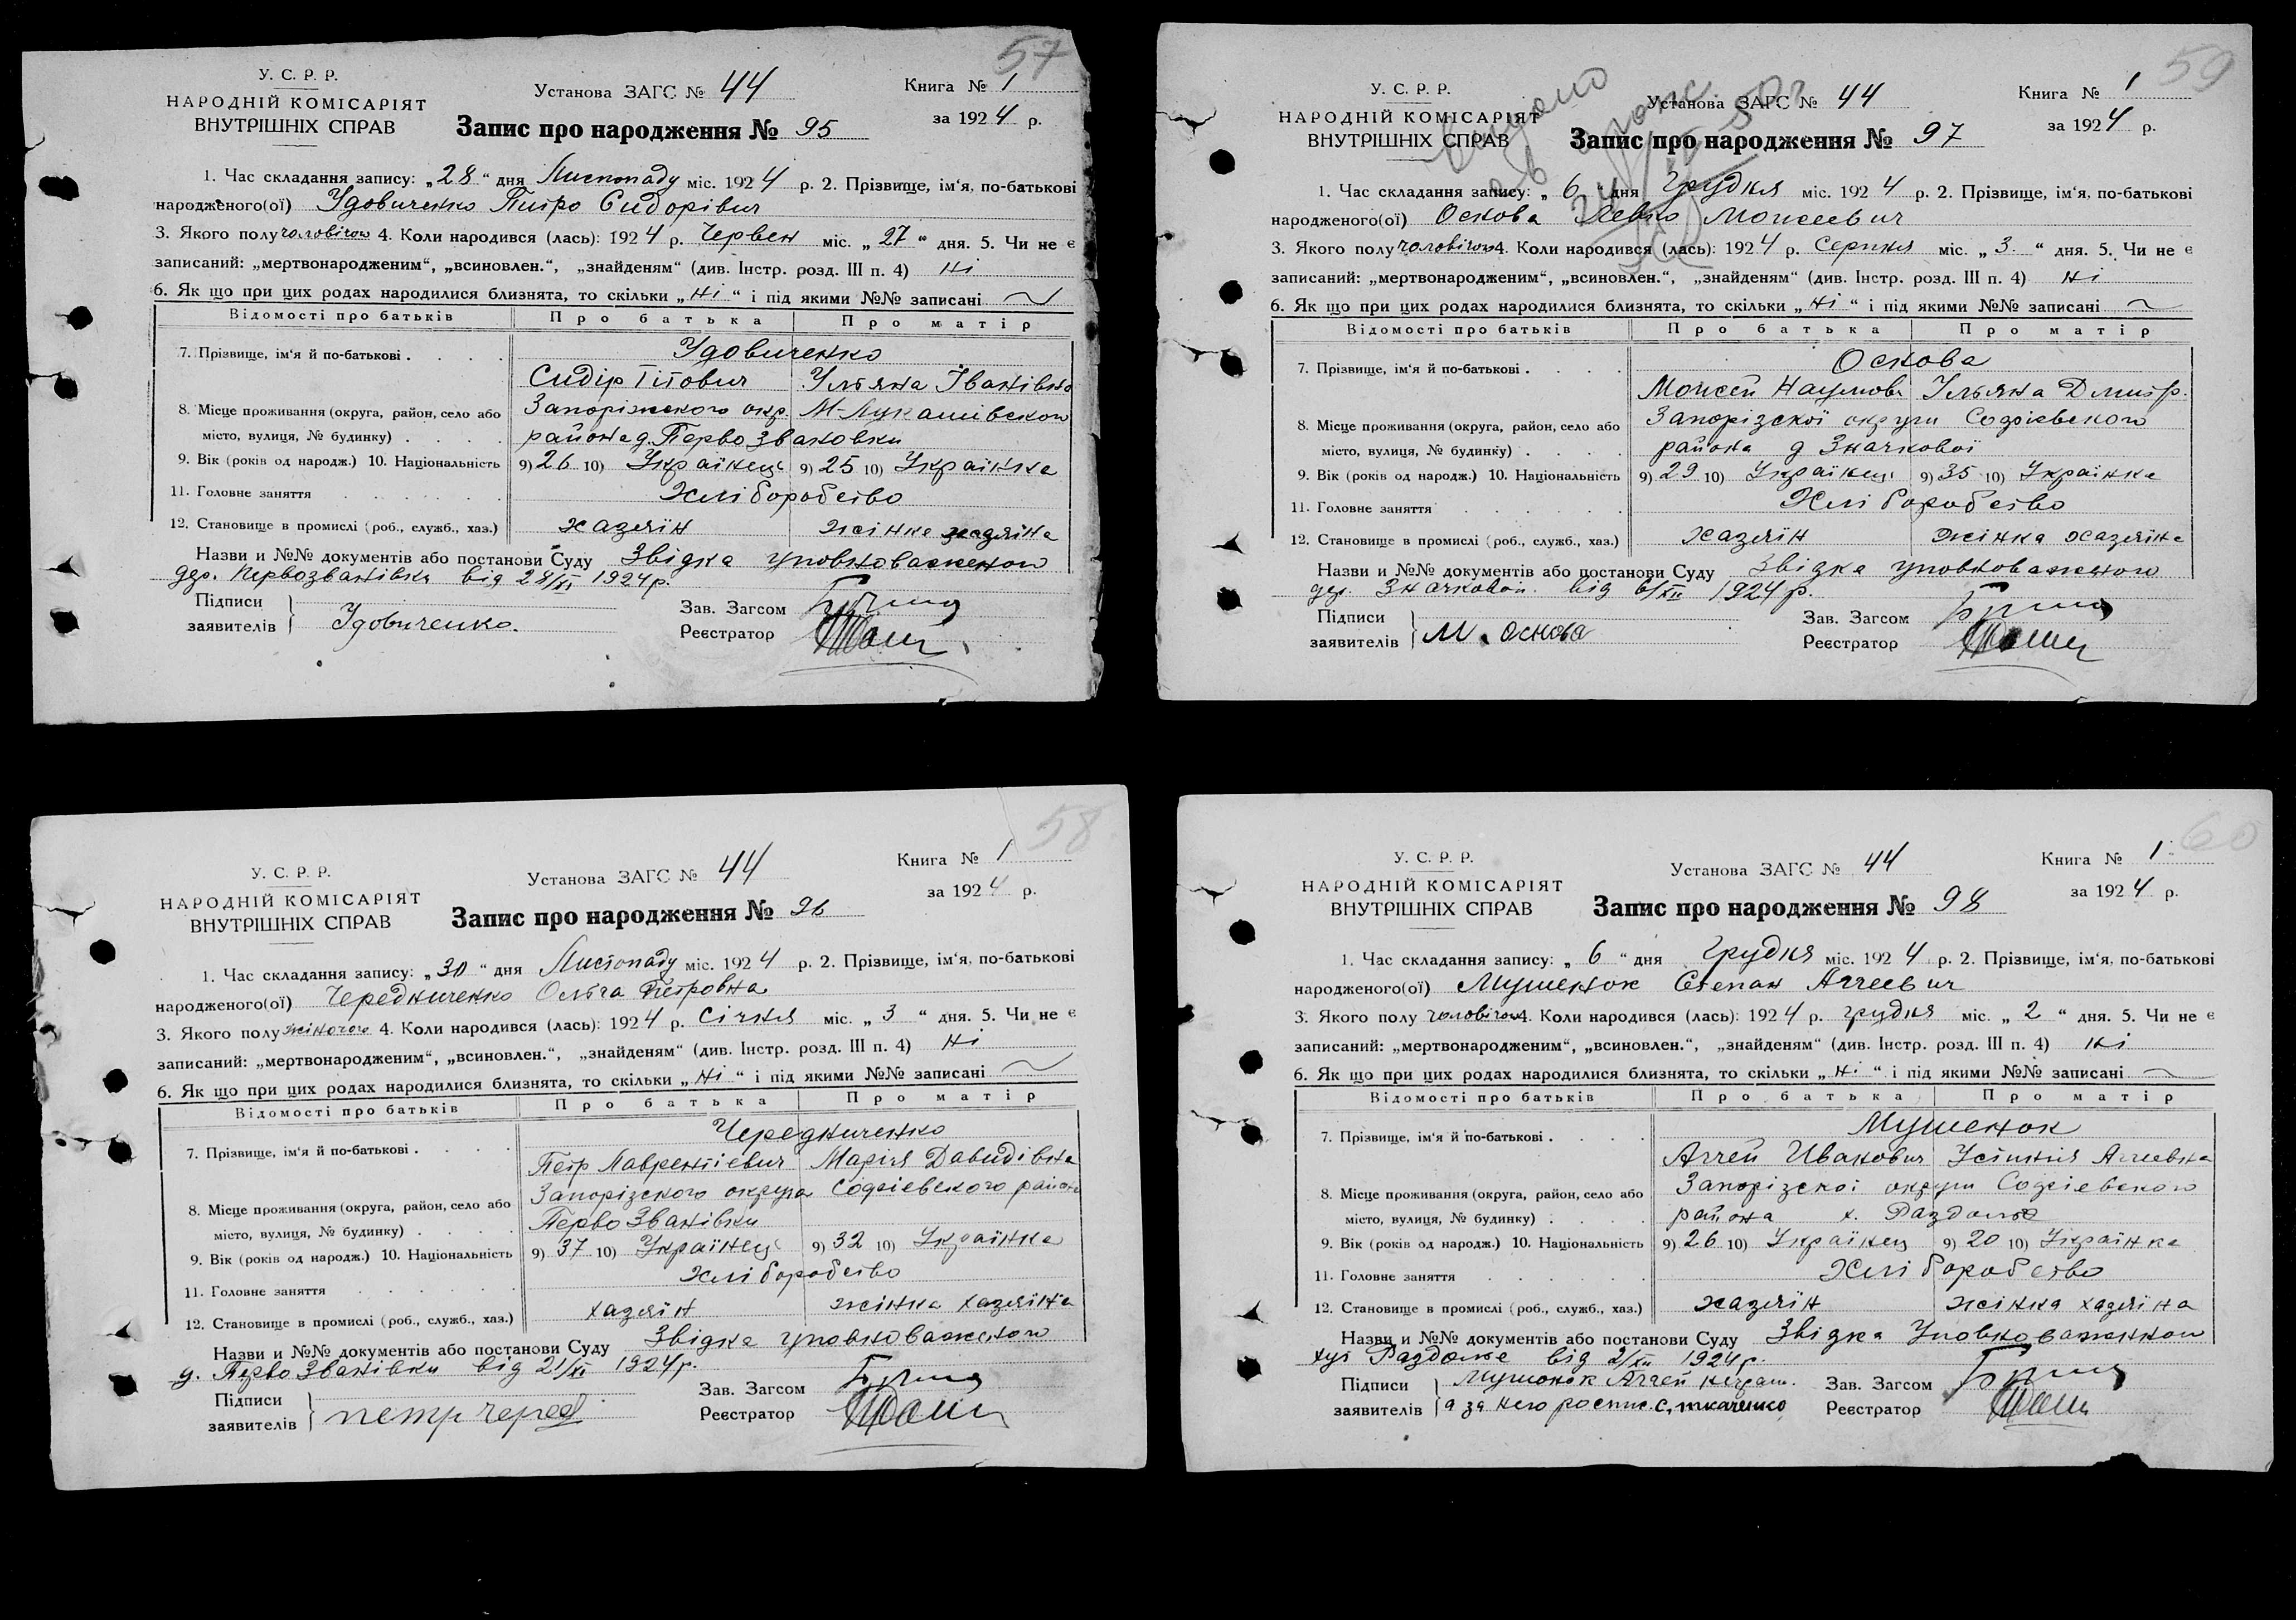 57
У. С. Р. Р.
НАРОДНІЙ КОМІСАРІЯТ
ВНУТРІШНІХ СПРАВ
Установа ЗАГС № 44
Книга № 1
за 1924 р.
Запис про народження № 95
1. Час складання запису: „28“ дня Листопаду міс. 1924 р. 2. Прізвище, ім‘я, по-батькові
народженого(ої) Удовиченко Питро Сидорівич
3. Якого полу чоловічого 4. Коли народився (лась): 1924 р. Червен міс. „27“ дня. 5. Чи не є
записаний: „мертвонародженим“, „всиновлен.“, „знайденям“ (див. Інстр. розд. III п. 4) Ні
6. Як що при цих родах народилися близнята, то скільки „Ні“ і під якими №№ записані
Відомості про батьків Про батька Про матір
7. Прізвище, ім‘я й по-батькові . Удовиченко
Сидір Тітович Ульяна Іванівна
8. Місце проживання (округа, район, село або Запоріжского окр. М-Лукашівского
місто, вулиця, № будинку) района д. Перво Звановки
9. Вік (років од народж.) 10. Національність 9) 26 10) Українець 9) 25 10) Українка
11. Головне заняття Хліборобство
12. Становище в промислі (роб., служб., хаз.) хазяїн жінка хазяїна
Назви и №№ документів або постанови Суду Звідка уповноваженого
дер. Первозванівки від 28/XI 1924 р.
Підписи
заявителів Удовиченко.
Зав. Загсом
Реєстратор
59
У. С. Р. Р.
НАРОДНІЙ КОМІСАРІЯТ
ВНУТРІШНІХ СПРАВ
Установа ЗАГС № 44
Книга № 1
за 1924 р.
Запис про народження № 97
Видано
1. Час складання запису: „6“ дня Грудня міс. 1924 р. 2. Прізвище, ім‘я, по-батькові
народженого(ої) Оскова Левко Мойсеевич
3. Якого полу чоловічого 4. Коли народився (лась): 1924 р. Серпня міс. „3.“ дня. 5. Чи не є
записаний: „мертвонародженим“, „всиновлен.“, „знайденям“ (див. Інстр. розд. III п. 4) Ні
6. Як що при цих родах народилися близнята, то скільки „Ні“ і під якими №№ записані
Відомості про батьків Про батька Про матір
7. Прізвище, ім‘я й по-батькові . Оскова
Мойсей Наумови Ульяна Дмитр.
8. Місце проживання (округа, район, село або Запорізскої округи Софіевского
місто, вулиця, № будинку) . района д Значкової
9. Вік (років од народж.) 10. Національність 9) 29 10) Українець 9) 35 10) Українка
11. Головне заняття Хліборобство
12. Становище в промислі (роб., служб., хаз.) хазяїн жінка хазяїна
Назви и №№ документів або постанови Суду Звідка уповноваженого
дер. Значковой. від 6/XII 1924 р.
Підписи
заявителів М. Оскова
Зав. Загсом
Реєстратор
58
У. С. Р. Р.
НАРОДНІЙ КОМІСАРІЯТ
ВНУТРІШНІХ СПРАВ
Установа ЗАГС № 44
Книга № 1
за 1924 р.
Запис про народження № 96
1. Час складання запису: „30“ дня Листопаду міс. 1924 р. 2. Прізвище, ім‘я, по-батькові
народженого(ої) Чередниченко Ольга Петровна
3. Якого полу жіночого 4. Коли народився (лась): 1924 р. Січня міс. „3“ дня. 5. Чи не є
записаний: „мертвонародженим“, „всиновлен.“, „знайденям“ (див. Інстр. розд. III п. 4) Ні
6. Як що при цих родах народилися близнята, то скільки „Ні“ і під якими №№ записані
Відомості про батьків Про батька Про матір
7. Прізвище, ім‘я й по-батькові . Чередниченко
Петр Лаврентіевич Марія Давидівна
8. Місце проживання (округа, район, село або Запорізского округа Софіевского района
місто, вулиця, № будинку) . Перво Званівки
9. Вік (років од народж.) 10. Національність 9) 37 10) Українець 9) 32 10) Українка
11. Головне заняття Хліборобство
12. Становище в промислі (роб., служб., хаз.) хазяїн жінка хазяїна
Назви и №№ документів або постанови Суду Звідка уповноваженого
д. Перво Званівки від 21/XI 1924 р.
Підписи
заявителів петр черед
Зав. Загсом
Реєстратор
60
У. С. Р. Р.
НАРОДНІЙ КОМІСАРІЯТ
ВНУТРІШНІХ СПРАВ
Установа ЗАГС № 44
Книга № 1
за 1924 р.
Запис про народження № 98
1. Час складання запису: „6“ дня Грудня міс. 1924 р. 2. Прізвище, ім‘я, по-батькові
народженого(ої) Мушенок Степан Аггеевич
3. Якого полу чоловічого 4. Коли народився (лась): 1924 р. грудня міс. „2“ дня. 5. Чи не є
записаний: „мертвонародженим“, „всиновлен.“, „знайденям“ (див. Інстр. розд. III п. 4) Ні
6. Як що при цих родах народилися близнята, то скільки „Ні“ і під якими №№ записані
Відомості про батьків Про батька Про матір
7. Прізвище, ім‘я й по-батькові . Мушенок
Аггей Иванович Устинія Аггеевна
8. Місце проживання (округа, район, село або Запорізскої округи Софіевского
місто, вулиця, № будинку) . района х. Раздолье
9. Вік (років од народж.) 10. Національність 9) 26 10) Українец 9) 20 10) Українка
11. Головне заняття Хліборобство
12. Становище в промислі (роб., служб., хаз.) хазяїн жінка хазяїна
Назви и №№ документів або постанови Суду Звідка Уповноваженного
хут Раздолье від 2/XII 1924 р.
Підписи Мушонок Аггей неграм.
заявителів а за него роспис. С. Ткаченко
Зав. Загсом
Реєстратор